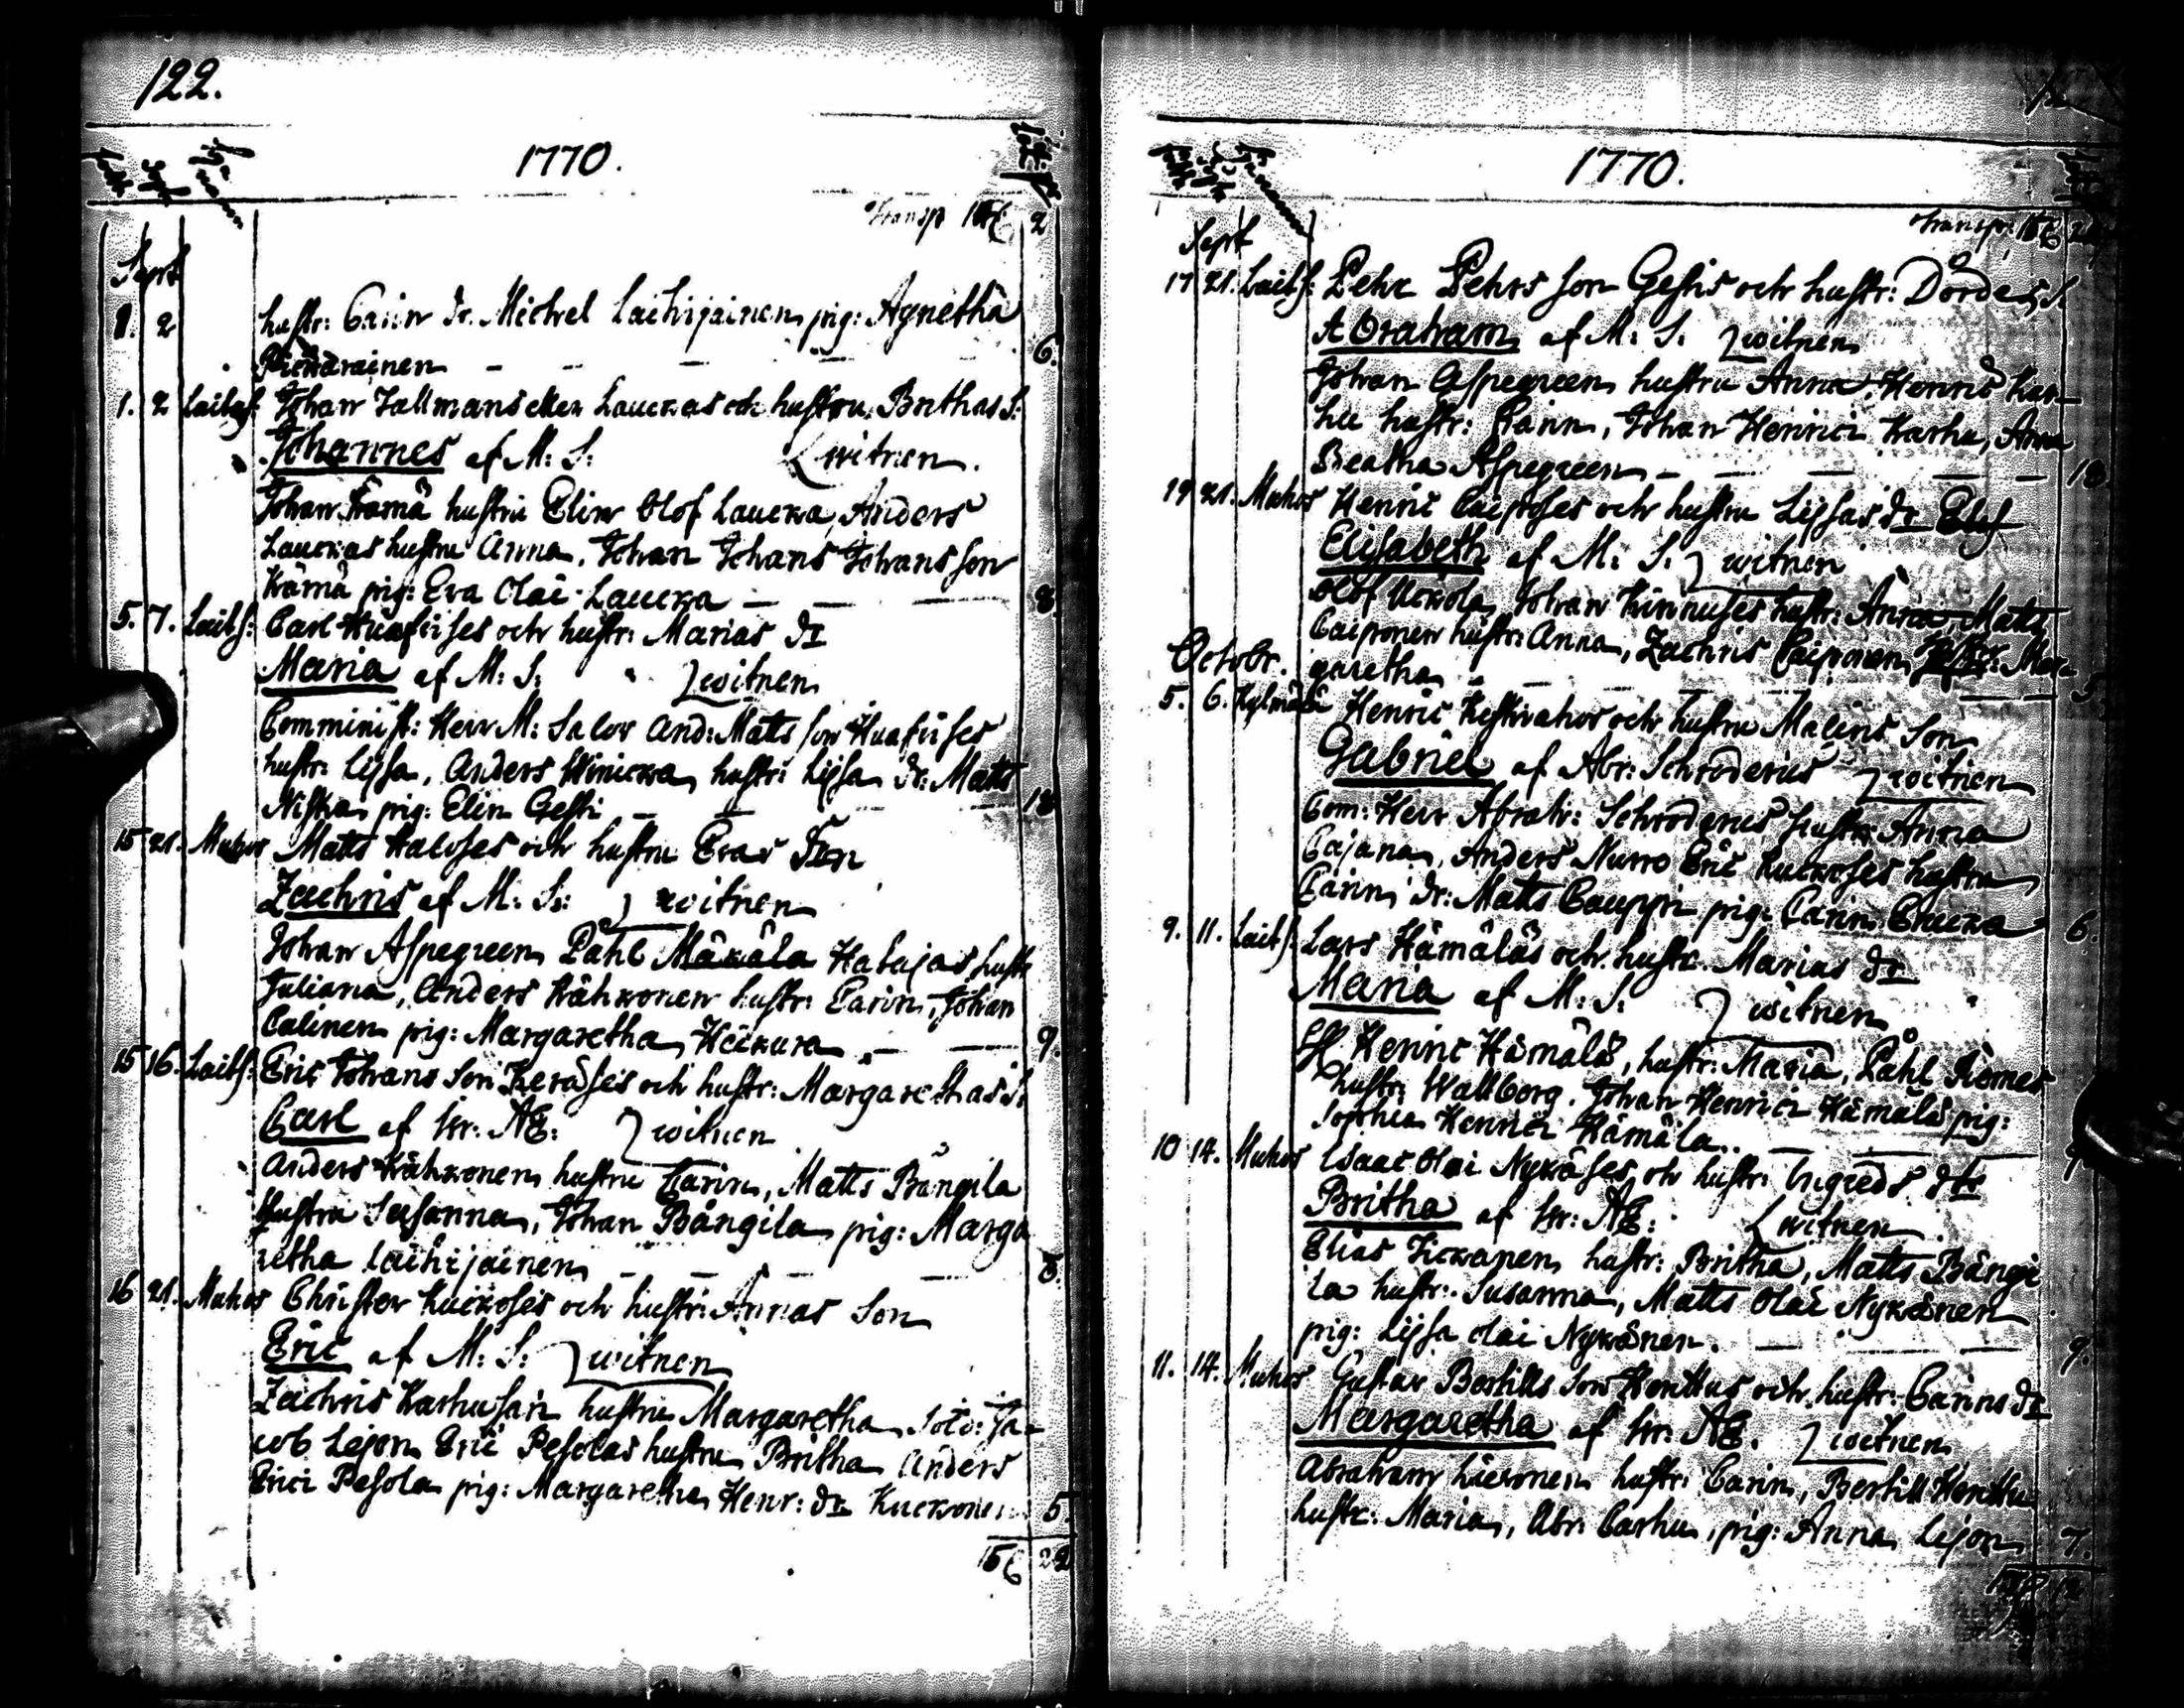 122.
1770.
Transp 156 2
Sept
1. 2 hustr: Carin dr. Michel Laihijainen pig: Agnetha
Pickarainen — — — 6.
1. 2 Laitas: Johan Tallmans eller Lauckas och hustru Brithas S.
Johannes af M: S: witnen.
Johan Kämä hustru Elin Olof Laucka, Anders
Lauckas hustru Anna, Johan Johans Johans son
Kämä pig: Eva Olai Laucka — — — 8.
5. 7. Laits: Carl Huafuses och hustr: Marias dr
Maria af M: S: witnen
Comminist: Herr M: Salov And: Matts son Huafuses
hustr: Lijsa, Anders Winicka hustr: Lijsa dr: Matts
Niska pig: Elin Gesti — — 18
15 21. Muhos Matts Haloses och hustru Evas Son
Zachris af M: S: witnen
Johan Aspegreen Påhl Mäkälä Hatajas hustr
Juliana, Anders Kähkonen hustr: Carin, Johan
Calinen pig: Margaretha Heikura — — 9.
15 16. Laits: Eric Johans Son Keräses och hustr: Margarethas S.
Carl af hr: AE: witnen
Anders Kähkonen hustru Carin, Matts Bångila
Hustru Susanna, Johan Bångila pig: Marga
retha Laihijainen — — 8.
16 21. Muhos Christer Kuckoses och hustr: Annas Son
Eric af M: S: witnen
Zachris Karhusain hustru Margaretha Sold: Ja-
cob Lejon Eric Pesolas hustru Britha Anders
Erici Pesola pig: Margaretha Henr: dr Kuckonen 5.
156 22
1770.
Transp: 156 22
Sept
17 21. Laits: Pehr Pehrs son Gestis och hustr: Dordes S.
Abraham af M: S: witnen
Johan Aspegreen hustru Anna, Henric Kar-
hu hustr: Carin, Johan Henrici Karhu, Anna
Beatha Aspegreen — — — 18.
19 21. Muhos Henric Caiposes och hustru Lijsas dr
Elisabeth af M: S. witnen
Olof Uckola, Johan Kinnuses hustr: Anna Matts
Caiponen hustr: Anna, Zachris Caiponen Mar-
Octobr. garetha — — — 5
5. 6. Kylmälä Henric Keskivahos och hustru Malins Son
Gabriel af Abr: Schroderus witnen
Com: Herr Abrah: Schroderus hustr: Anna
Cajana, Anders Nurro Eric Kuckoses hustru
Carin dr: Matts Cauppi pig: Carin Chucka 6.
9. 11. Laits: Lars Hämäläs och hustr. Marias dr
Maria af M: S: witnen
Henric Hämälä, hustr: Maria, Påhl Riemes
hustr: Wallborg. Johan Henrici Hämälä pig:
Sophia Henrici Hämälä. —
10 14. Muhos Isaac Olai Nykäses och hustr: Ingreds dtr
Britha af hr: AE: witnen
Elias Kickanen hustr: Britha, Matts Bångi
la hustr: Susanna, Matts Olai Nykänen
pig: Lijsa Olai Nykänen. — — 9.
11. 14. Muhos Gustav Bertills Son Henttus och hustr: Carins dr
Margaretha af hr: AE. witnen
Abraham Luckonen hustr: Carin, Bertill Henttu
hustr: Maria, Abr: Carhu, pig: Anna Lejon 7.